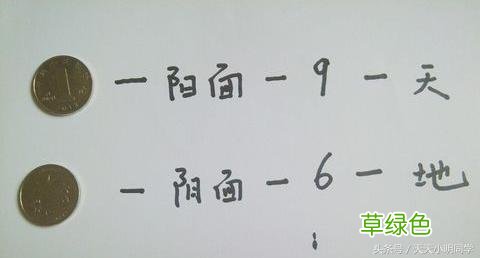 1
— 阳面 — 9 — 天
— 阴面 — 6 — 地
草绿色
头条号 / 天天小明同学